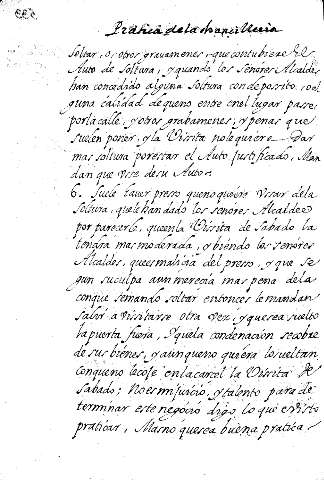 Pratica de la chancilleria
soltar, o, otros gravamenes, que contubiere el
Auto de soltura, y quando los señores Alcaldes
han concedido alguna soltura con deposito, o al
guna calidad de que no entre en el lugar pase
por la calle, y otros grabamenes, y penas que
suelen poner, y la Visita no le quiere Dar
mas soltura por estar el Auto justificado, Man
dan que use de su Auto
6. Suele haver preso que no quiere usar de la
soltura, que le han dado los señores Alcaldes
por parecerle, que en la Visita de Sabado la
tendra mas moderada, y biendo los señores
Alcaldes, que es malicia del preso, y que se
gun su culpa aun merecia mas pena de la
con que se mando soltar entonces le mandan
salir a visitarse otra vez, y que sea suelto
la puerta fuera, y que la condenacion se cobre
de sus bienes, y aunque no quiera lo sueltan
con que no le coje en la carcel la Visita de
Sabado; No es mi juicio, y talento para de
terminar este negocio digo, lo que e visto
praticar, Mas no que sea buena pratica